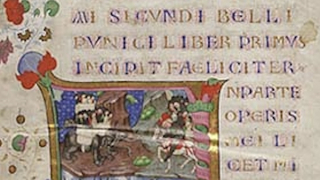 MI SECVNDI BELLI
PVNICI LIBER PRIMVS
INCIPIT FAELICITER
NPARTE
OPERIS
MEI LI
CET MI